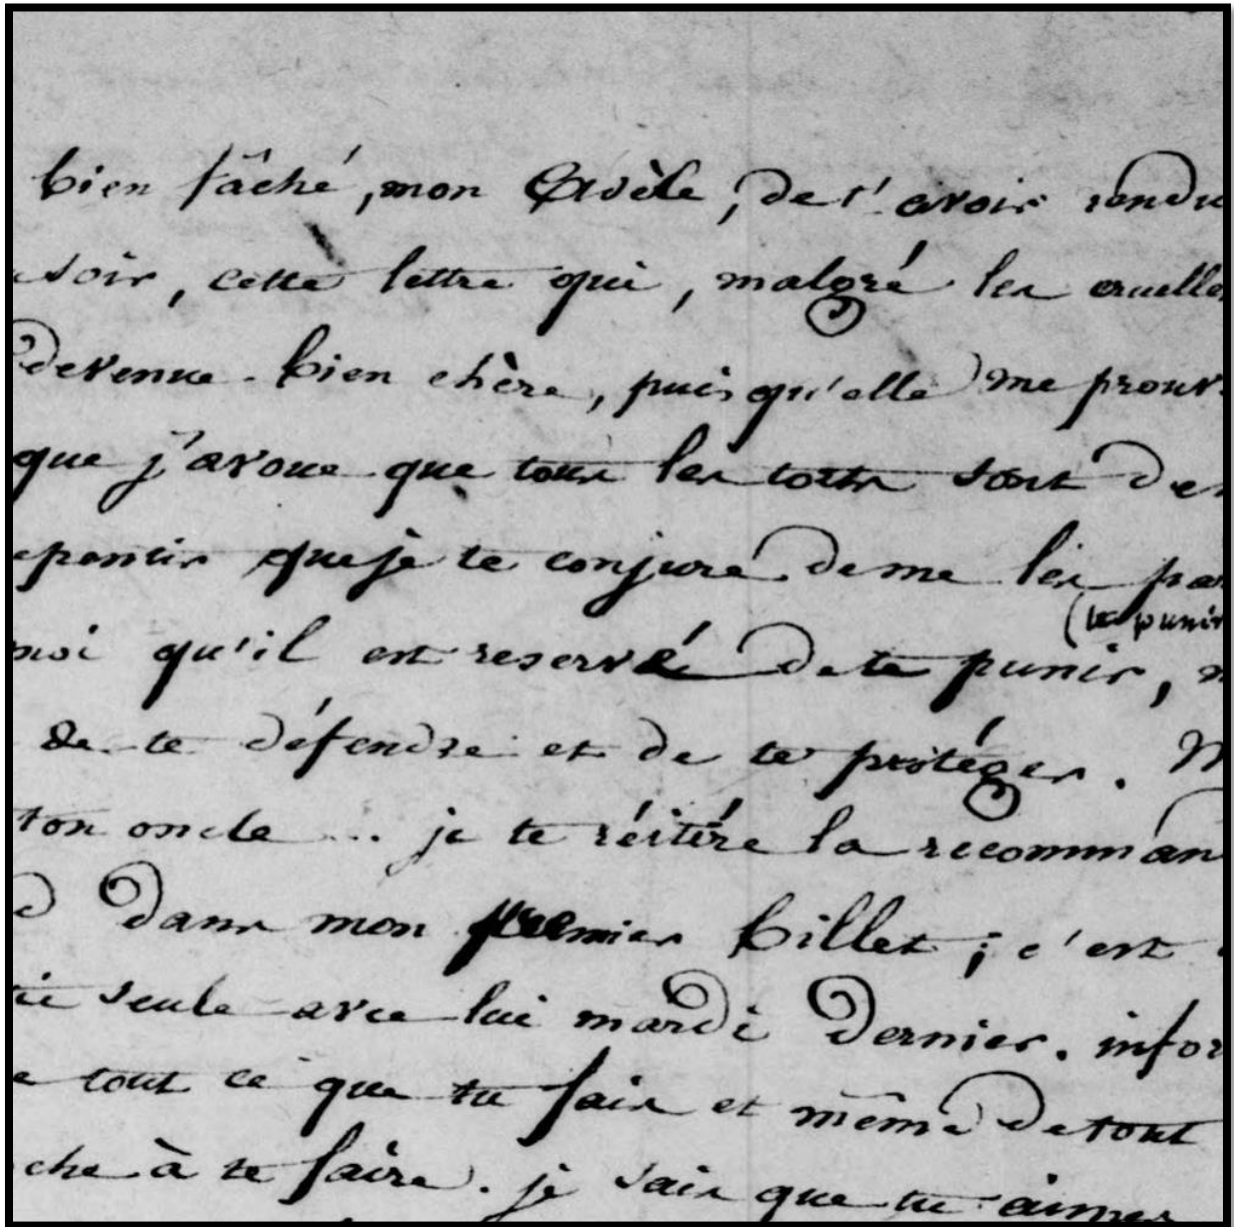 bien fâché, mon Adèle, de t'avoir rendu
soir, cette lettre qui, malgré les cruelles
devenue bien chère, puisqu'elle me prouv
que j'avoue que tous les torts sont de
epentir que je te conjure de me les par
(te punir
moi qu'il est reservé de te punir,
de te défendre et de te protéger.
ton oncle ... je te réitère la recomman
dans mon premier billet ; c'est
seule avec lui mardi dernier. infor
e tout ce que tu fais et même de tout
che à te faire. je sais que tu aimes